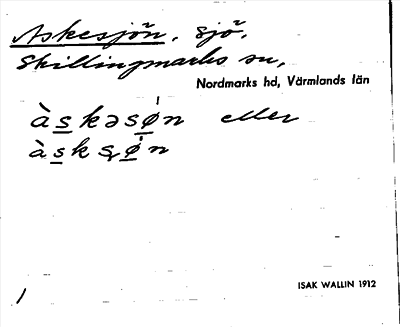 Askesjön, sjö,
Skillingmarks sn,
Nordmarks hd, Värmlands län
àskəsø̀n eller
àsksøn
ISAK WALLIN 1912